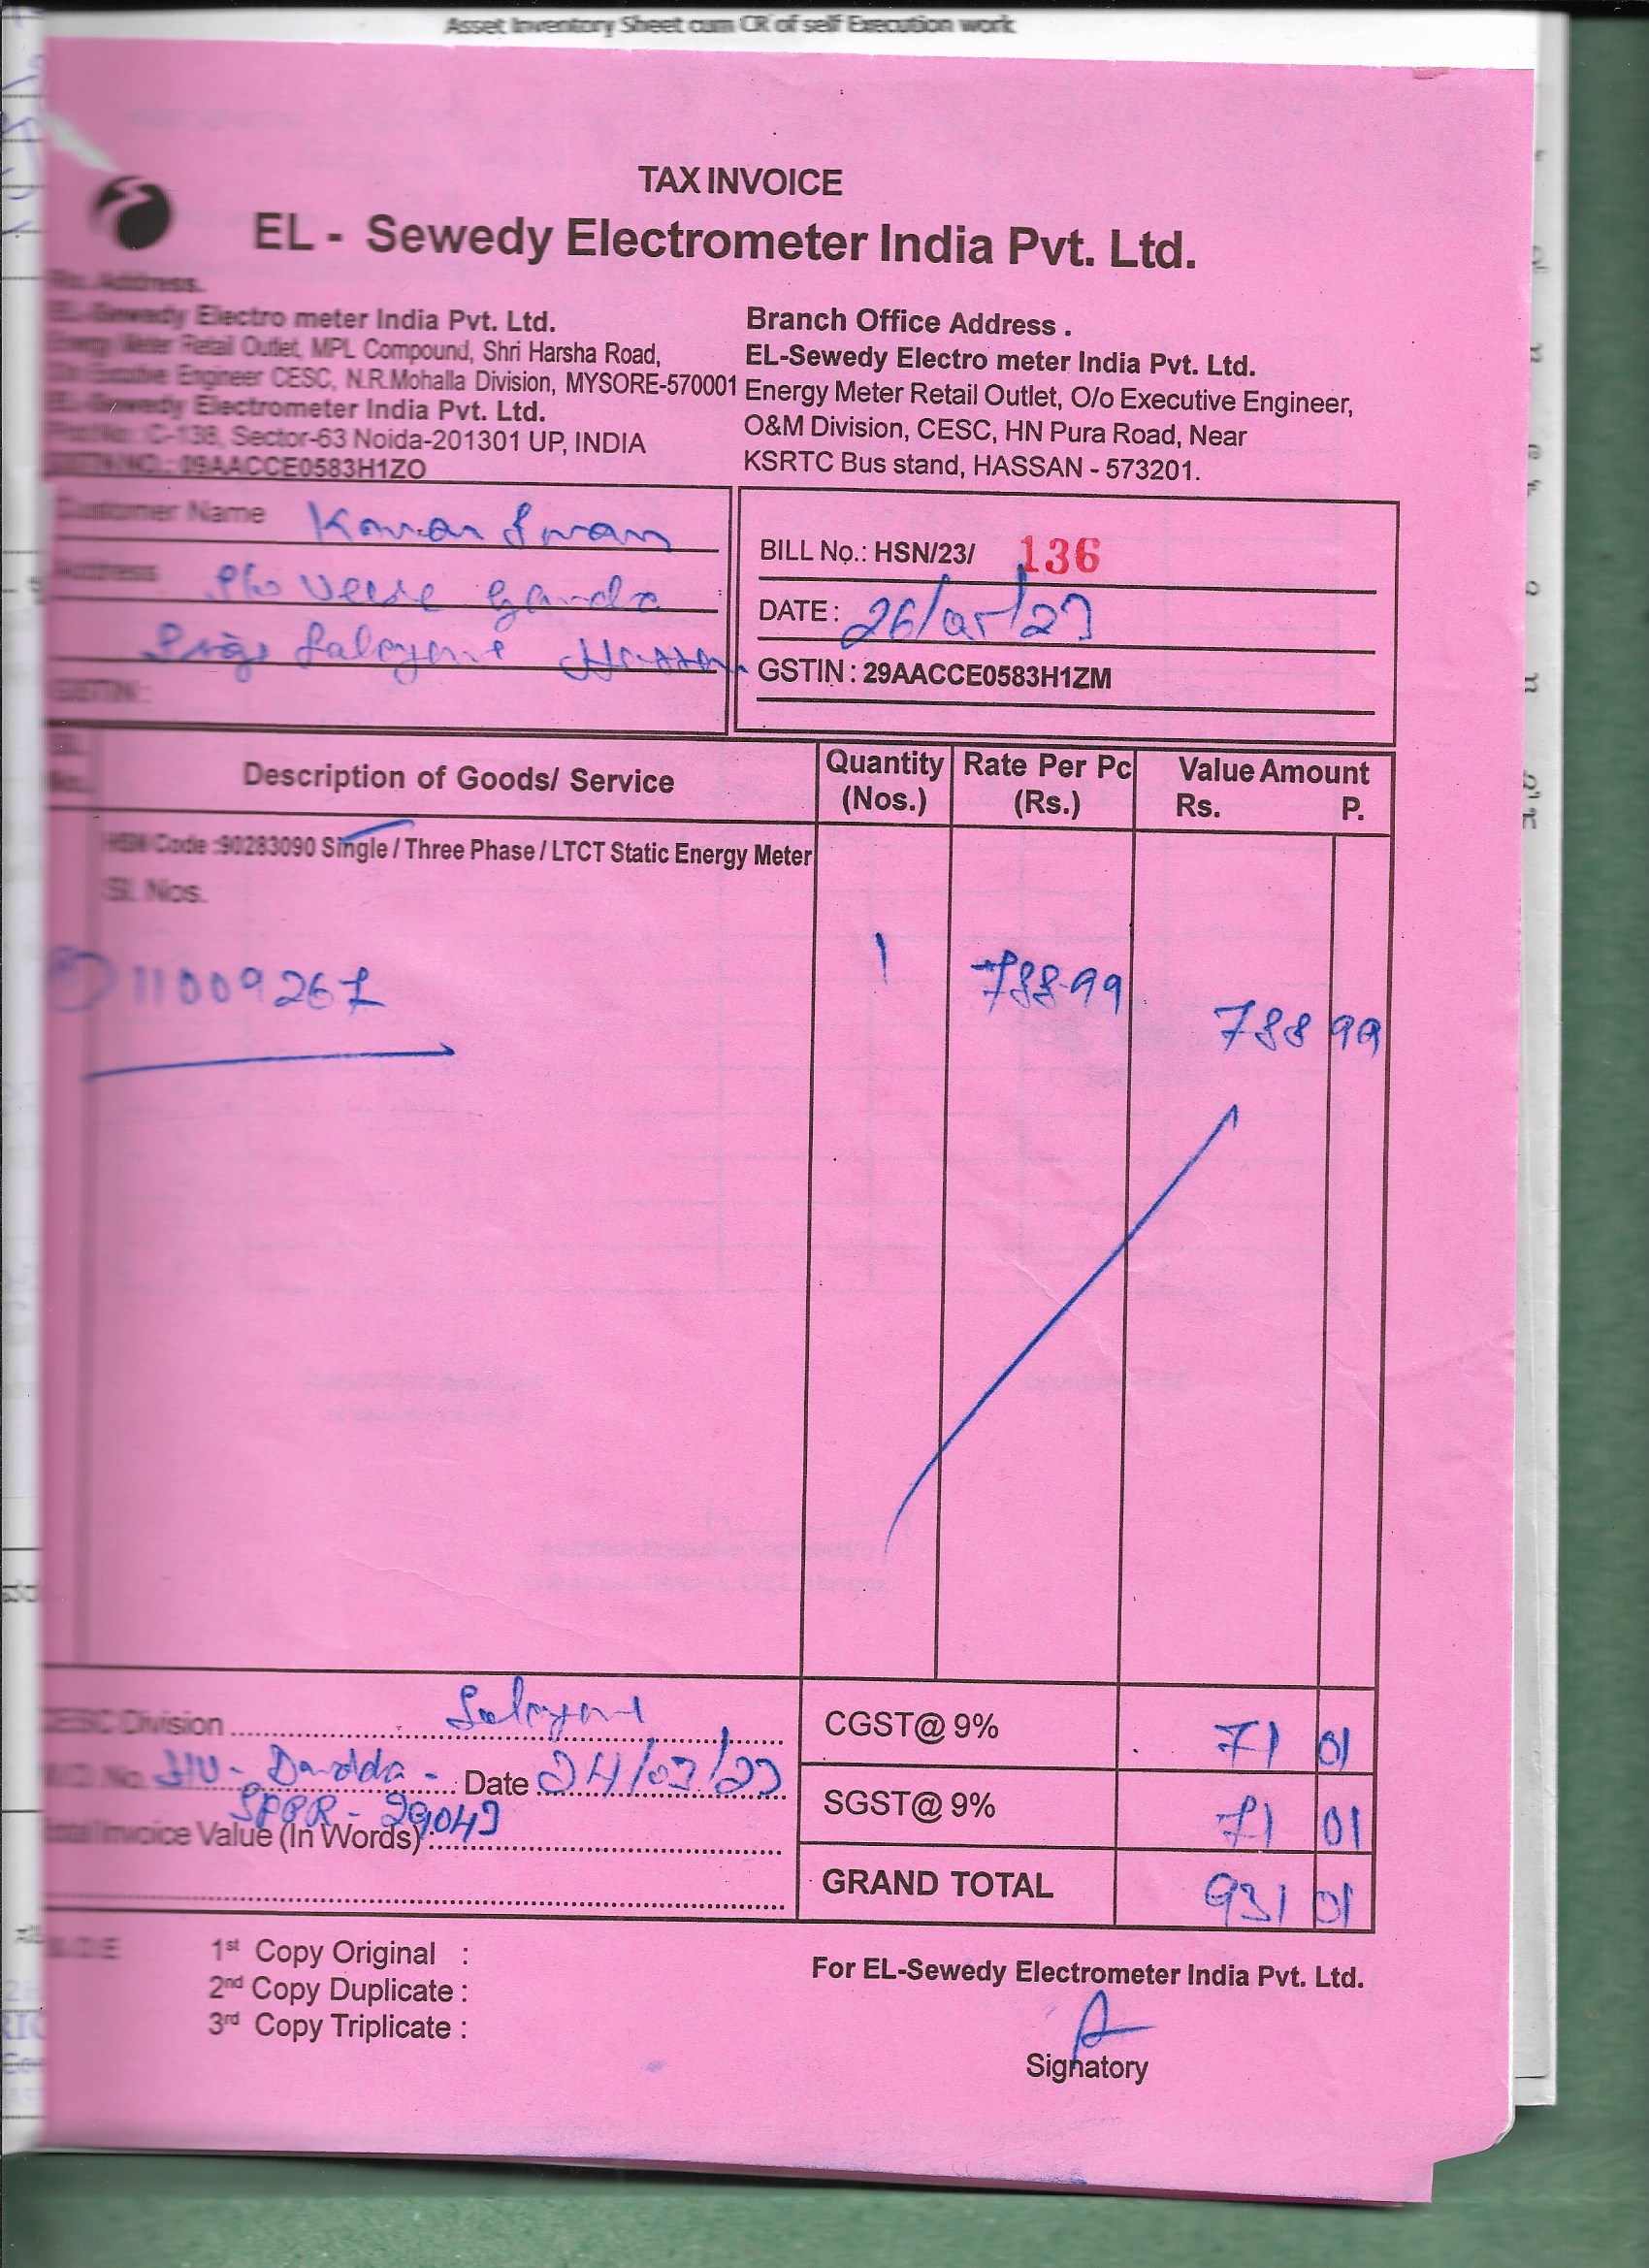 Asset Inventory Sheet cum CR of self Execution work
TAX INVOICE
EL - Sewedy Electrometer India Pvt. Ltd.
Address.
EL-Sewedy Electro meter India Pvt. Ltd.
Energy Meter Retail Outlet, MPL Compound, Shri Harsha Road,
Executive Engineer CESC, N.R.Mohalla Division, MYSORE-570001
EL-Sewedy Electrometer India Pvt. Ltd.
C-138, Sector-63 Noida-201301 UP, INDIA
GSTIN NO.: 09AACCE0583H1ZO
Branch Office Address .
EL-Sewedy Electro meter India Pvt. Ltd.
Energy Meter Retail Outlet, O/o Executive Engineer,
O&M Division, CESC, HN Pura Road, Near
KSRTC Bus stand, HASSAN - 573201.
Customer Name
Address
GSTIN:
BILL No.: HSN/23/ 136
DATE : 26/05/23
GSTIN : 29AACCE0583H1ZM
Sl. Nos. Description of Goods/ Service Quantity (Nos.) Rate Per Pc (Rs.) Value Amount Rs. P.
HSN Code :90283090 Single / Three Phase / LTCT Static Energy Meter
Sl. Nos.
11009267 1 788.99 788 99
CESC Division
Date 24/03/23 CGST@ 9% 71 01
SPPR - 29043 SGST@ 9% 71 01
Total Invoice Value (In Words)
GRAND TOTAL 931 01
1st Copy Original :
2nd Copy Duplicate :
3rd Copy Triplicate :
For EL-Sewedy Electrometer India Pvt. Ltd.
Signatory